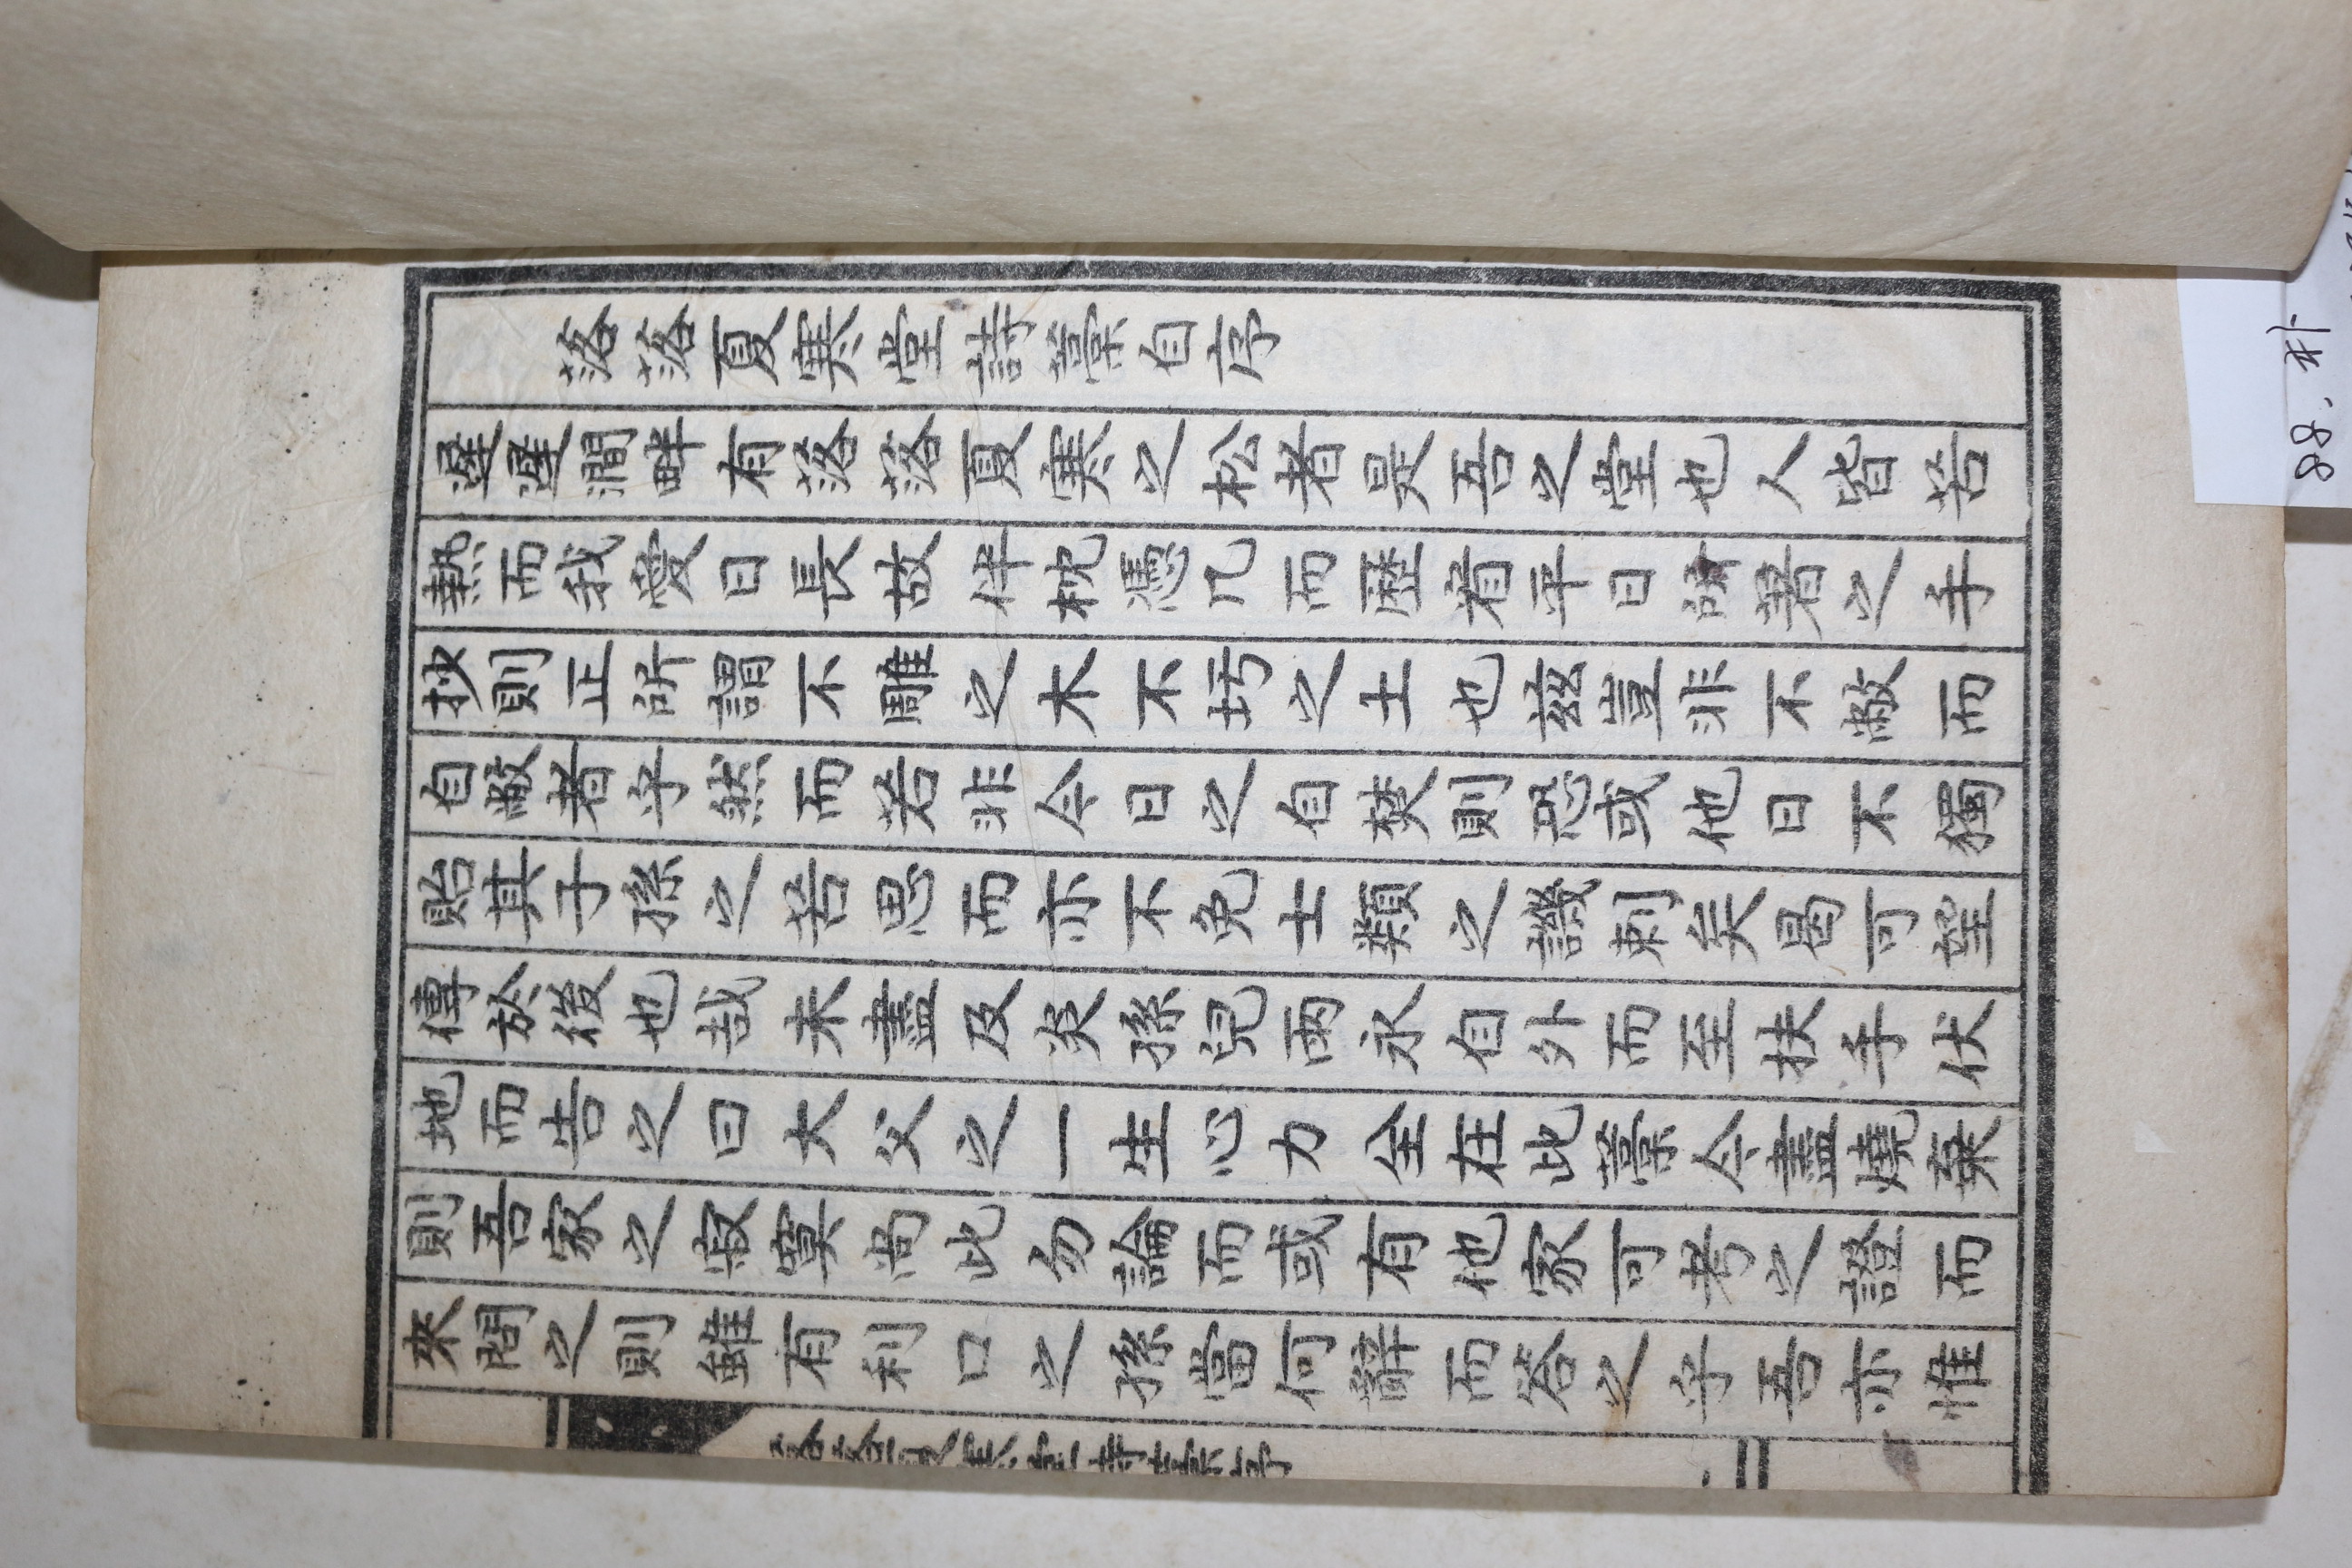 落落夏寒堂詩藁自序
遲遲澗畔有落落夏寒之松者是吾之堂也人皆苦
熱而我愛日長故伴枕憑几而歷着平日所著之手
抄則正所謂不雕之木不圬之土也玆豈非不敝而
自敝者乎然而若非今日之自焚則恐或他日不獨
貽其子孫之苦思而亦不免士類之譏刺矣曷可望
傳於後也哉未盡及炎孫兒兩永自外而至扶手伏
地而告之曰大父之一生心力全在此藁今盡燒棄
則吾家之寂寞尙此勿論而或有他家可考之證而
來問之則雖有利口之孫當何辭而答之乎吾亦惟
落落夏寒堂詩藁序
88. 차